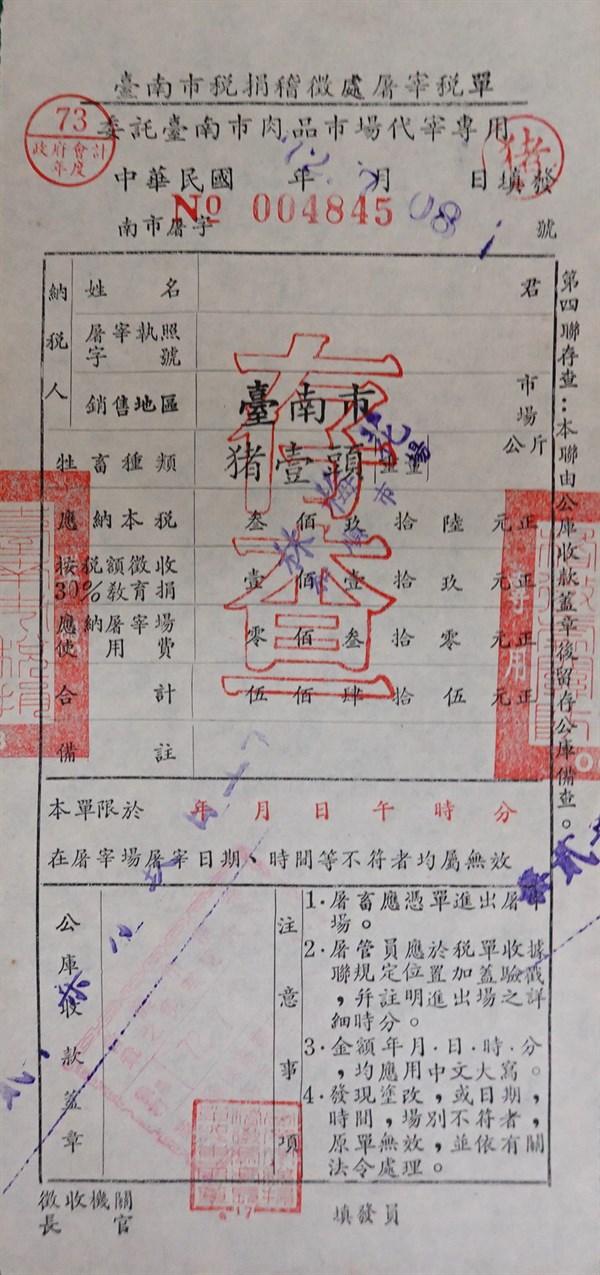 臺南市稅捐稽徵處屠宰稅單
73
政府會計
年度
委託臺南市肉品市場代宰專用
猪
中華民國 年 月 日填發
南市屠字 No 004845 號
納稅人
姓名 君
屠宰執照
字號
銷售地區 臺南市 市場
牲畜種類 猪壹頭 重量 公斤
應納本稅 叁佰玖拾陸元正
按稅額徵收
30%教育捐 壹佰壹拾玖元正
應納屠宰場
使用費 零佰叁拾零元正
合計 伍佰肆拾伍元正
備註
存查
專用
第四聯存查：本聯由公庫收款蓋章後留存公庫備查。
本單限於 年 月 日 午 時 分
在屠宰場屠宰日期、時間等不符者均屬無效
公庫收款蓋章
注意事項
1.屠畜應憑單進出屠宰
場。
2.屠管員應於稅單收據
聯規定位置加蓋驗戳
，并註明進出場之詳
細時分。
3.金額年月.日.時.分
，均應用中文大寫。
4.發現塗改，或日期，
時間，場別不符者，
原單無效，並依有關
法令處理。
徵收機關
長官
填發員